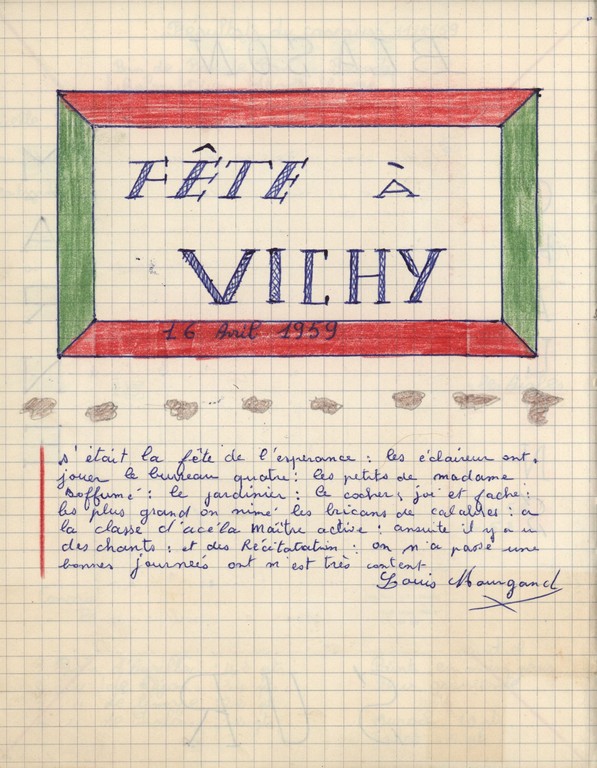 FÊTE À
VICHY
16 Avril 1959
s'était la fête de l'esperance : les éclaireur ont.
jouer le bureau quatre : les petits de madame
Boffumé : le jardinier : le cocher, joi et faché :
les plus grand on mimé les bricans de calabres : a
la classe d'acéla Maître active : ansuite il y a u
des chants : et des Récitatation : on n'a passé une
bonnes journeés ont n'est très content
Louis Mourgand